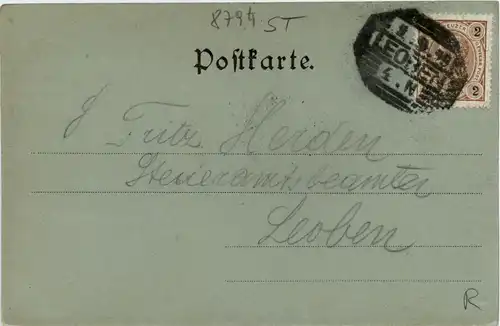 8794 ST
Postkarte.
LEOBEN
2 2
Fritz Heiden
Steueramtsbeamter
Leoben
R